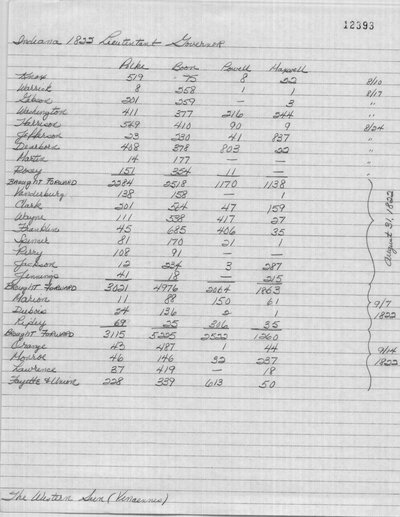 12393
Indiana 1822 Lieutentant Governor
Polke Boon Powell Maxwell
Knox 519 75 8 22 8/10
Warrick 8 258 1 1 8/17
Gibson 201 259 — 3 "
Washington 411 377 216 244 "
Harrison 549 410 90 9 8/24
Jefferson 23 230 41 837 "
Dearborn 408 378 803 22 "
Martin 14 177 — — "
Posey 151 354 11 — "
Brought Forward 2284 2518 1170 1138
Vanderburg 138 158 — 1
Clark 201 564 47 159
Wayne 111 538 417 27
Franklin 45 685 406 35
Spencer 81 170 21 1
Perry 108 91 — —
Jackson 12 234 3 287
Jennings 41 18 — 215
August 31, 1822
Brought Forward 3021 4976 2064 1863
Marion 11 88 150 61 9/7
Dubois 24 136 2 1 1822
Ripley 69 25 306 35
Brought Forward 3115 5225 2522 1260
Orange 43 487 1 44 9/14
Monroe 46 146 32 237 1822
Lawrence 37 419 — 18
Fayette & Union 228 339 613 50
The Western Sun (Vincennes)